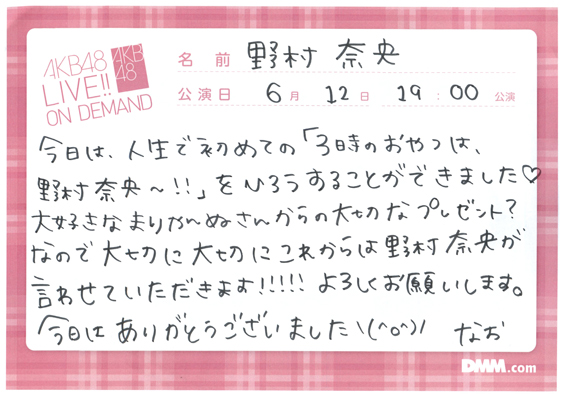 AKB48
LIVE!!
ON DEMAND
AKB
48
名前 野村 奈央
公演日 6月 12日 19:00 公演
今日は、人生で初めての「3時のおやつは、
野村奈央〜!!」をひろうすることができました♡
大好きなまりやんぬさんからの大切なプレゼント?
なので大切に大切にこれからは野村奈央が
言わせていただきます!!!!! よろしくお願いします。
今日はありがとうございました\(^o^)/ なお
DMM.com